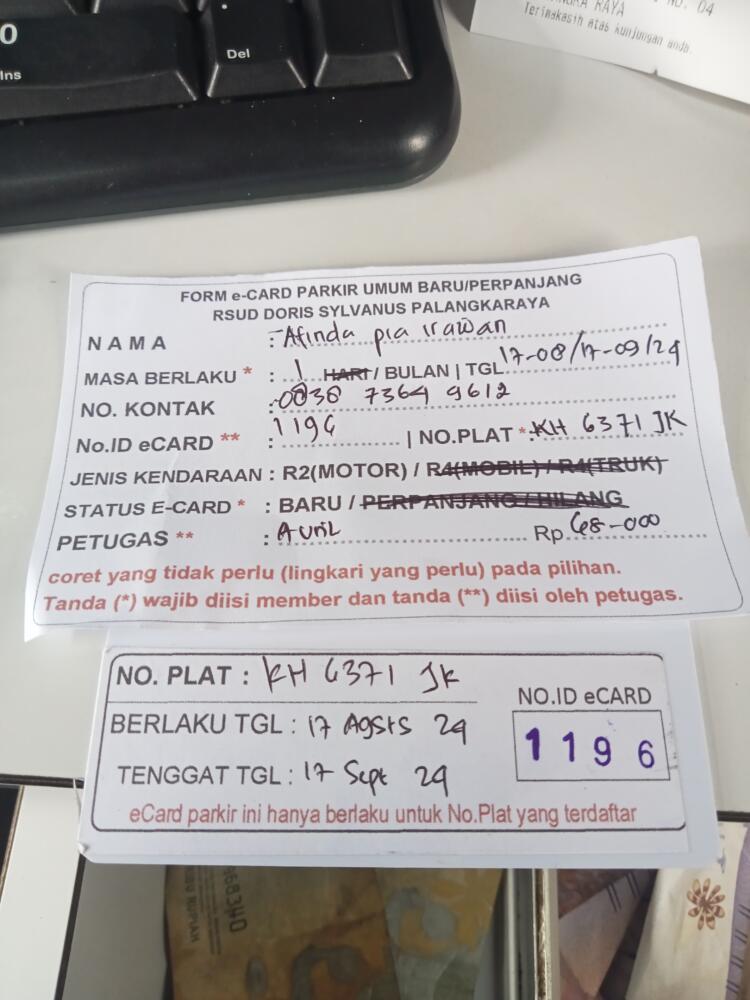 0
Ins
.
Del
NO. 04
RAYA
Terimakasih atas kunjungan anda.
FORM e-CARD PARKIR UMUM BARU/PERPANJANG
RSUD DORIS SYLVANUS PALANGKARAYA
NAMA : Afinda pra irawan
MASA BERLAKU * : 1 HARI / BULAN | TGL 17-08/17-09/24
NO. KONTAK : 0838 7364 9612
No.ID eCARD ** : 1196 | NO.PLAT * : KH 6371 JK
JENIS KENDARAAN : R2(MOTOR) / R4(MOBIL) / R4(TRUK)
STATUS E-CARD * : BARU / PERPANJANG / HILANG
PETUGAS ** : Auril Rp 68-000
coret yang tidak perlu (lingkari yang perlu) pada pilihan.
Tanda (*) wajib diisi member dan tanda (**) diisi oleh petugas.
NO. PLAT : KH 6371 JK
BERLAKU TGL : 17 Agsts 24
TENGGAT TGL : 17 Sept 24
NO.ID eCARD
1196
eCard parkir ini hanya berlaku untuk No.Plat yang terdaftar
668340
RUPIAH